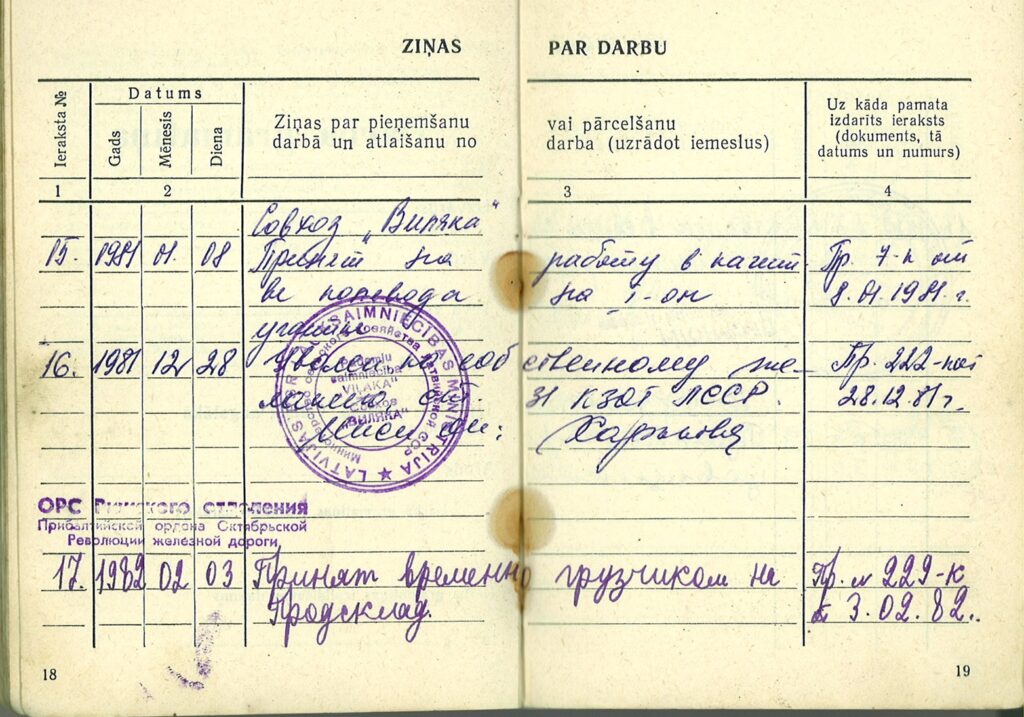 ZIŅAS PAR DARBU
Ieraksta №
Datums
Gads
Mēnesis
Diena
Ziņas par pieņemšanu
darbā un atlaišanu no
vai pārcelšanu
darba (uzrādot iemeslus)
Uz kāda pamata
izdarīts ieraksts
(dokuments, tā
datums un numurs)
1 2 3 4
Совхоз „Виляка"
15. 1981 01. 08 Принят на работу в Пр. 7-к от
перевода на 1-ом 8.01.1981 г.
участке
16. 1981 12 28 Уволен по собственному же- Пр. 222-к от
ланию ст. 31 КЗОТ ЛССР. 28.12.81 г.
LATVIJAS PSR LAUKSAIMNIECĪBAS MINISTRIJA
Министерство сельского хозяйства Латвийской ССР
Padomju
saimniecība
"VIĻAKA"
Совхоз
"ВИЛЯКА"
ОРС Рижского отделения
Прибалтийской ордена Октябрьской
Революции железной дороги,
17. 1982 02 03 Принят временно грузчиком на Пр. № 229-к
Продсклад. 3.02.82..
18
19